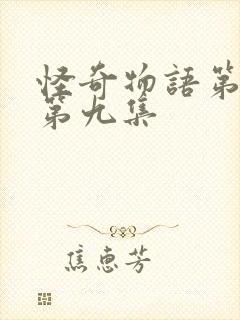 怪奇物語第
第九集
焦恵芳